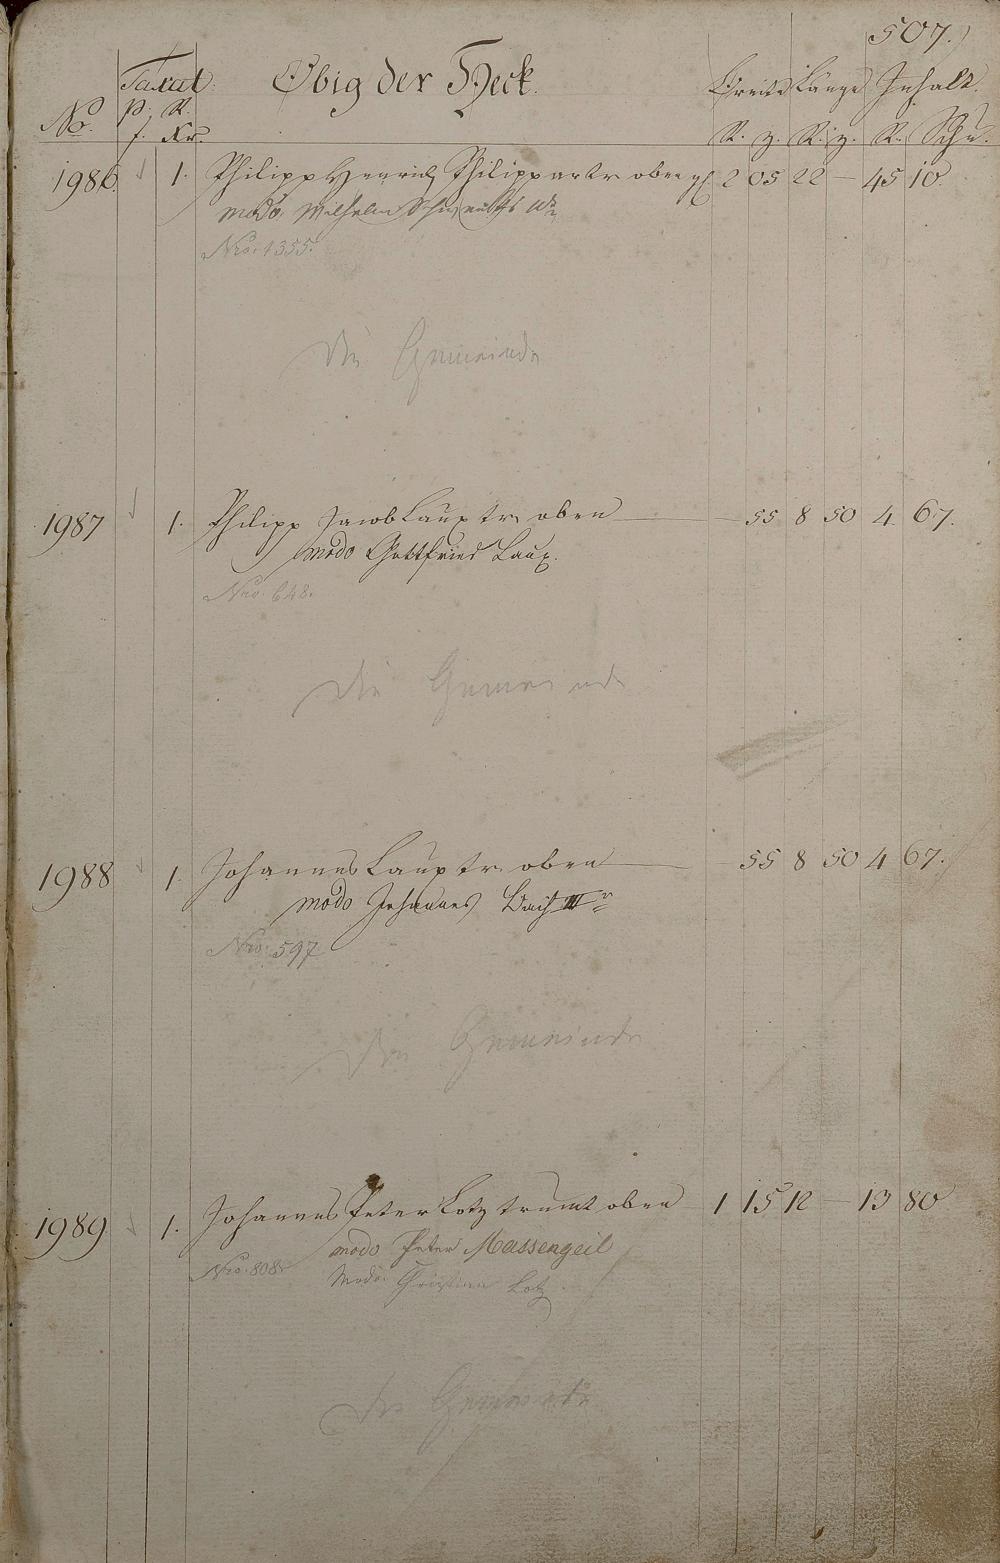 507.
Taxat. Obig der Heck. Breite Länge Inhalt.
No. p. R. R. Z. R. Z. R. Schu.
f. Kr.
1986. 1. Philipp Henrich Philippar tr oben 2 05 22 — 45 10.
modo Wilhelm
Nro. 1355.
die Gemeinde
1987 1. Philipp Jacob Laux tr. oben 55 8 50 4 67.
modo Gottfried Laux.
Nro. 648.
die Gemeinde
1988 1. Johannes Laux tr. oben 55 8 50 4 67.
modo Johannes Bach III r
Nro. 597
die Gemeinde
1989. 1. Johannes Peter Lotz trumt oben 1 15 12 — 13 80
modo Peter Massengeil
Nro. 808. Modo Christian Lotz
die Gemeinde